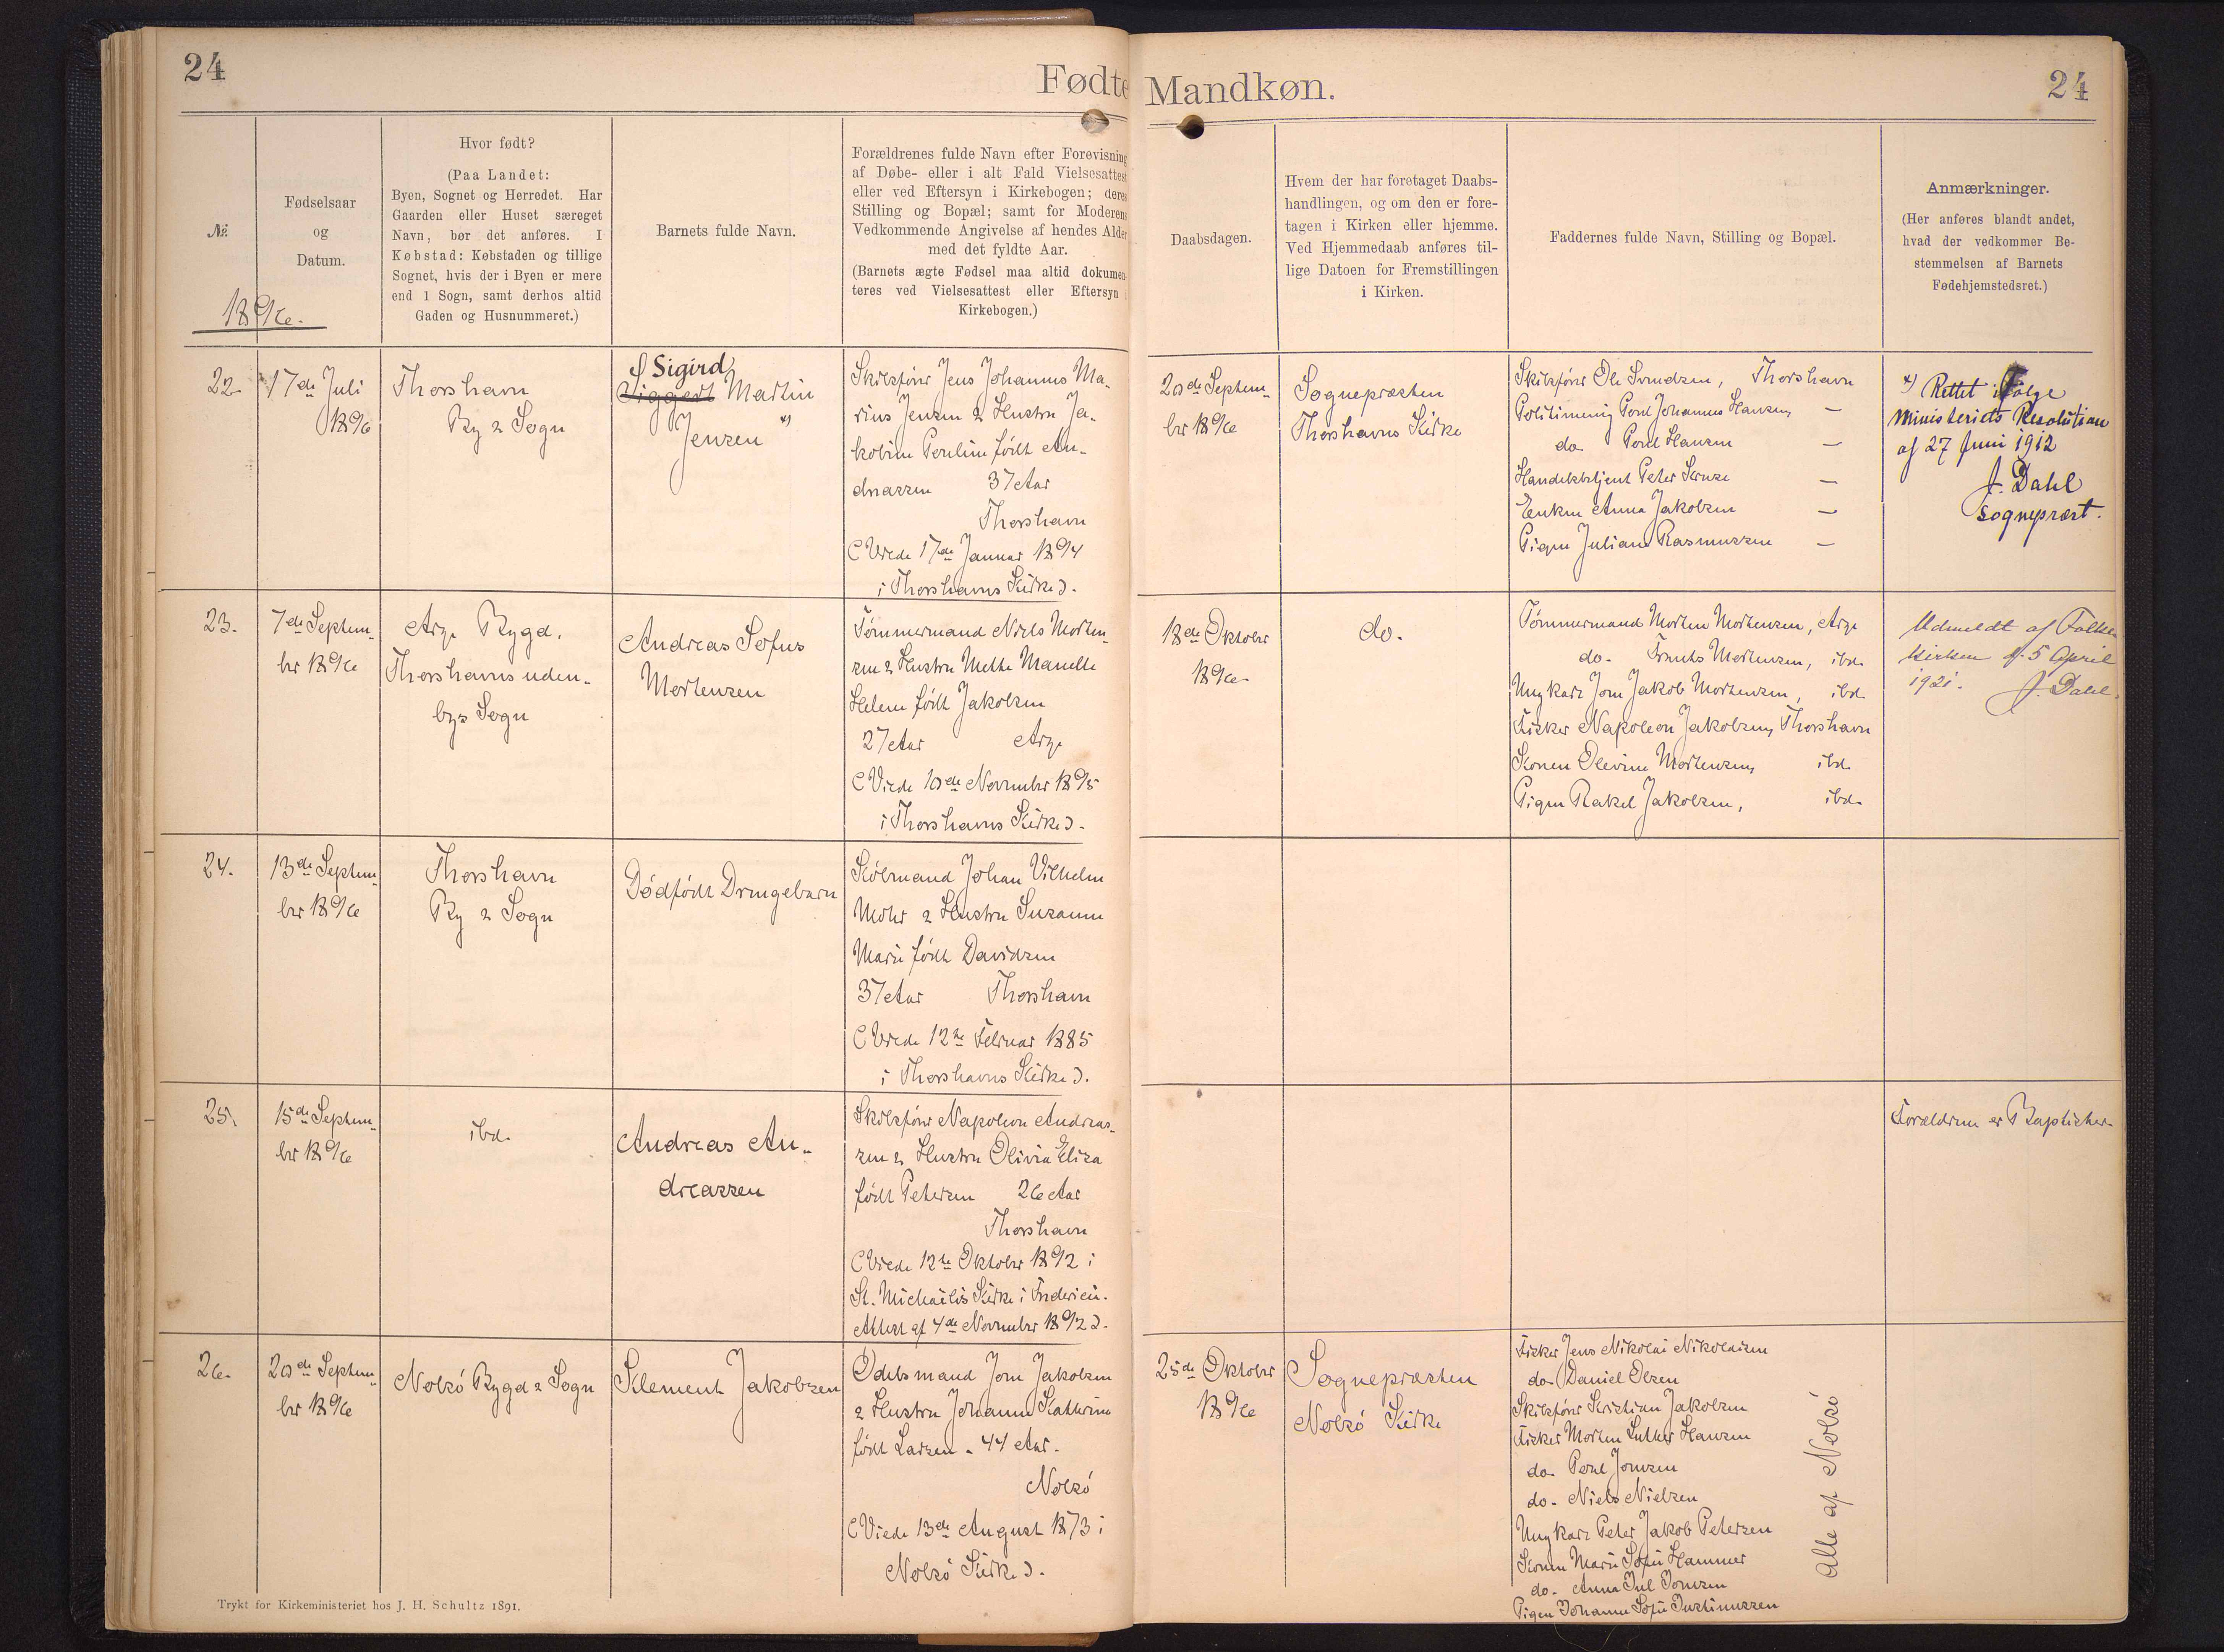 24
Fødte Mandkøn.
24
No.
1896.
Fødselsaar
og
Datum.
Hvor født?
(Paa Landet:
Byen, Sognet og Herredet. Har
Gaarden eller Huset særeget
Navn, bør det anføres. I
Købstad: Købstaden og tillige
Sognet, hvis der i Byen er mere
end 1 Sogn, samt derhos altid
Gaden og Husnummeret.)
Barnets fulde Navn.
Forældrenes fulde Navn efter Forevisning
af Døbe- eller i alt Fald Vielsesattest
eller ved Eftersyn i Kirkebogen; deres
Stilling og Bopæl; samt for Moderens
Vedkommende Angivelse af hendes Alder
med det fyldte Aar.
(Barnets ægte Fødsel maa altid dokumen-
teres ved Vielsesattest eller Eftersyn i
Kirkebogen.)
Daabsdagen.
Hvem der har foretaget Daabs-
handlingen, og om den er fore-
tagen i Kirken eller hjemme.
Ved Hjemmedaab anføres til-
lige Datoen for Fremstillingen
i Kirken.
Faddernes fulde Navn, Stilling og Bopæl.
Anmærkninger.
(Her anføres blandt andet,
hvad der vedkommer Be-
stemmelsen af Barnets
Fødehjemstedsret.)
22.
17de Juli
1896
Thorshavn
By & Sogn
Sigird
Siggert Martin
Jensen x)
Skibsfører Jens Johannes Ma-
rius Jensen & Hustru Ja-
kobine Pouline født An-
dreassen 37 Aar
Thorshavn
(Viede 17de Januar 1894
i Thorshavns Kirke).
20de Septem-
ber 1896
Sognepræsten
Thorshavns Kirke
Skibsfører Ole Svendsen, Thorshavn
Politibetjening Poul Johannes Hansen, —
do Poul Hansen —
Handelsbetjent Peter Kruse —
Enken Anna Jakobsen —
Pigen Juliane Rasmussen —
x) Rettet ifølge
Ministeriets Resolution
af 27 Juni 1912
J. Dahl
Sognepræst.
23.
7de Septem-
ber 1896
Arge Bygd,
Thorshavns uden-
bys Sogn
Andreas Sofus
Mortensen
Tømmermand Niels Morten-
sen & Hustru Mette Manette
Helene født Jakobsen
27 Aar Arge
(Viede 10de November 1895
i Thorshavns Kirke).
18de Oktober
1896
do.
Tømmermand Morten Mortensen, Arge
do. Frants Mortensen, ibd.
Ungkarl Jens Jakob Mortensen, ibd.
Fisker Napoleon Jakobsen, Thorshavn
Konen Olevine Mortensen, ibd.
Pigen Rakel Jakobsen, ibd.
Udmeldt af Folke-
kirken d. 5 April
1921. J. Dahl.
24.
13de Septem-
ber 1896
Thorshavn
By & Sogn
Dødfødt Drengebarn
Kølmand Johan Vilhelm
Mohr & Hustru Susanne
Marie født Davidsen
37 Aar Thorshavn
(Viede 12te Februar 1885
i Thorshavns Kirke).
25.
15de Septem-
ber 1896
ibd.
Andreas An-
dreassen
Skibsfører Napoleon Andreas-
sen & Hustru Olivia Elisa
født Petersen 26 Aar
Thorshavn
(Viede 12te Oktober 1892 i
St. Michaelis Kirke i Fredericia.
Attest af 4de November 1892).
Forældrene er Baptister.
26.
20de Septem-
ber 1896
Nolsö Bygd & Sogn
Klement Jakobsen
Odelsmand Jens Jakobsen
& Hustru Johanne Kathrine
født Larsen. 44 Aar.
Nolsö
(Viede 13de August 1873 i
Nolsö Kirke).
25de Oktober
1896
Sognepræsten
Nolsö Kirke
Fisker Jens Nikolai Nikolaisen
do Daniel Olsen
Skibsfører Kristian Jakobsen
Fisker Morten Luther Hansen
do. Poul Joensen
do. Niels Nielsen
Ungkarl Peter Jakob Petersen
Konen Marie Sofie Hammer
do. Anna Jul Joensen
Pigen Johanne Sofie Justinussen
Alle af Nolsö
Trykt for Kirkeministeriet hos J. H. Schultz 1891.